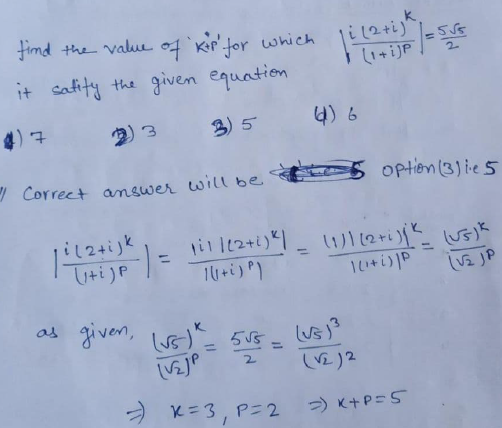 find the value of 'K+P' for which |i(2+i)^K/(1+i)^P| = 5√5/2
it satify the given equation
1) 7 2) 3 3) 5 4) 6
// Correct answer will be option(3) i.e 5
|i(2+i)^K/(1+i)^P| = |i| |(2+i)^K|/|(1+i)^P| = (1) |(2+i)|^K/|(1+i)|^P = (√5)^K/(√2)^P
as given, (√5)^K/(√2)^P = 5√5/2 = (√5)^3/(√2)2
⇒ K=3, P=2 ⇒ K+P=5